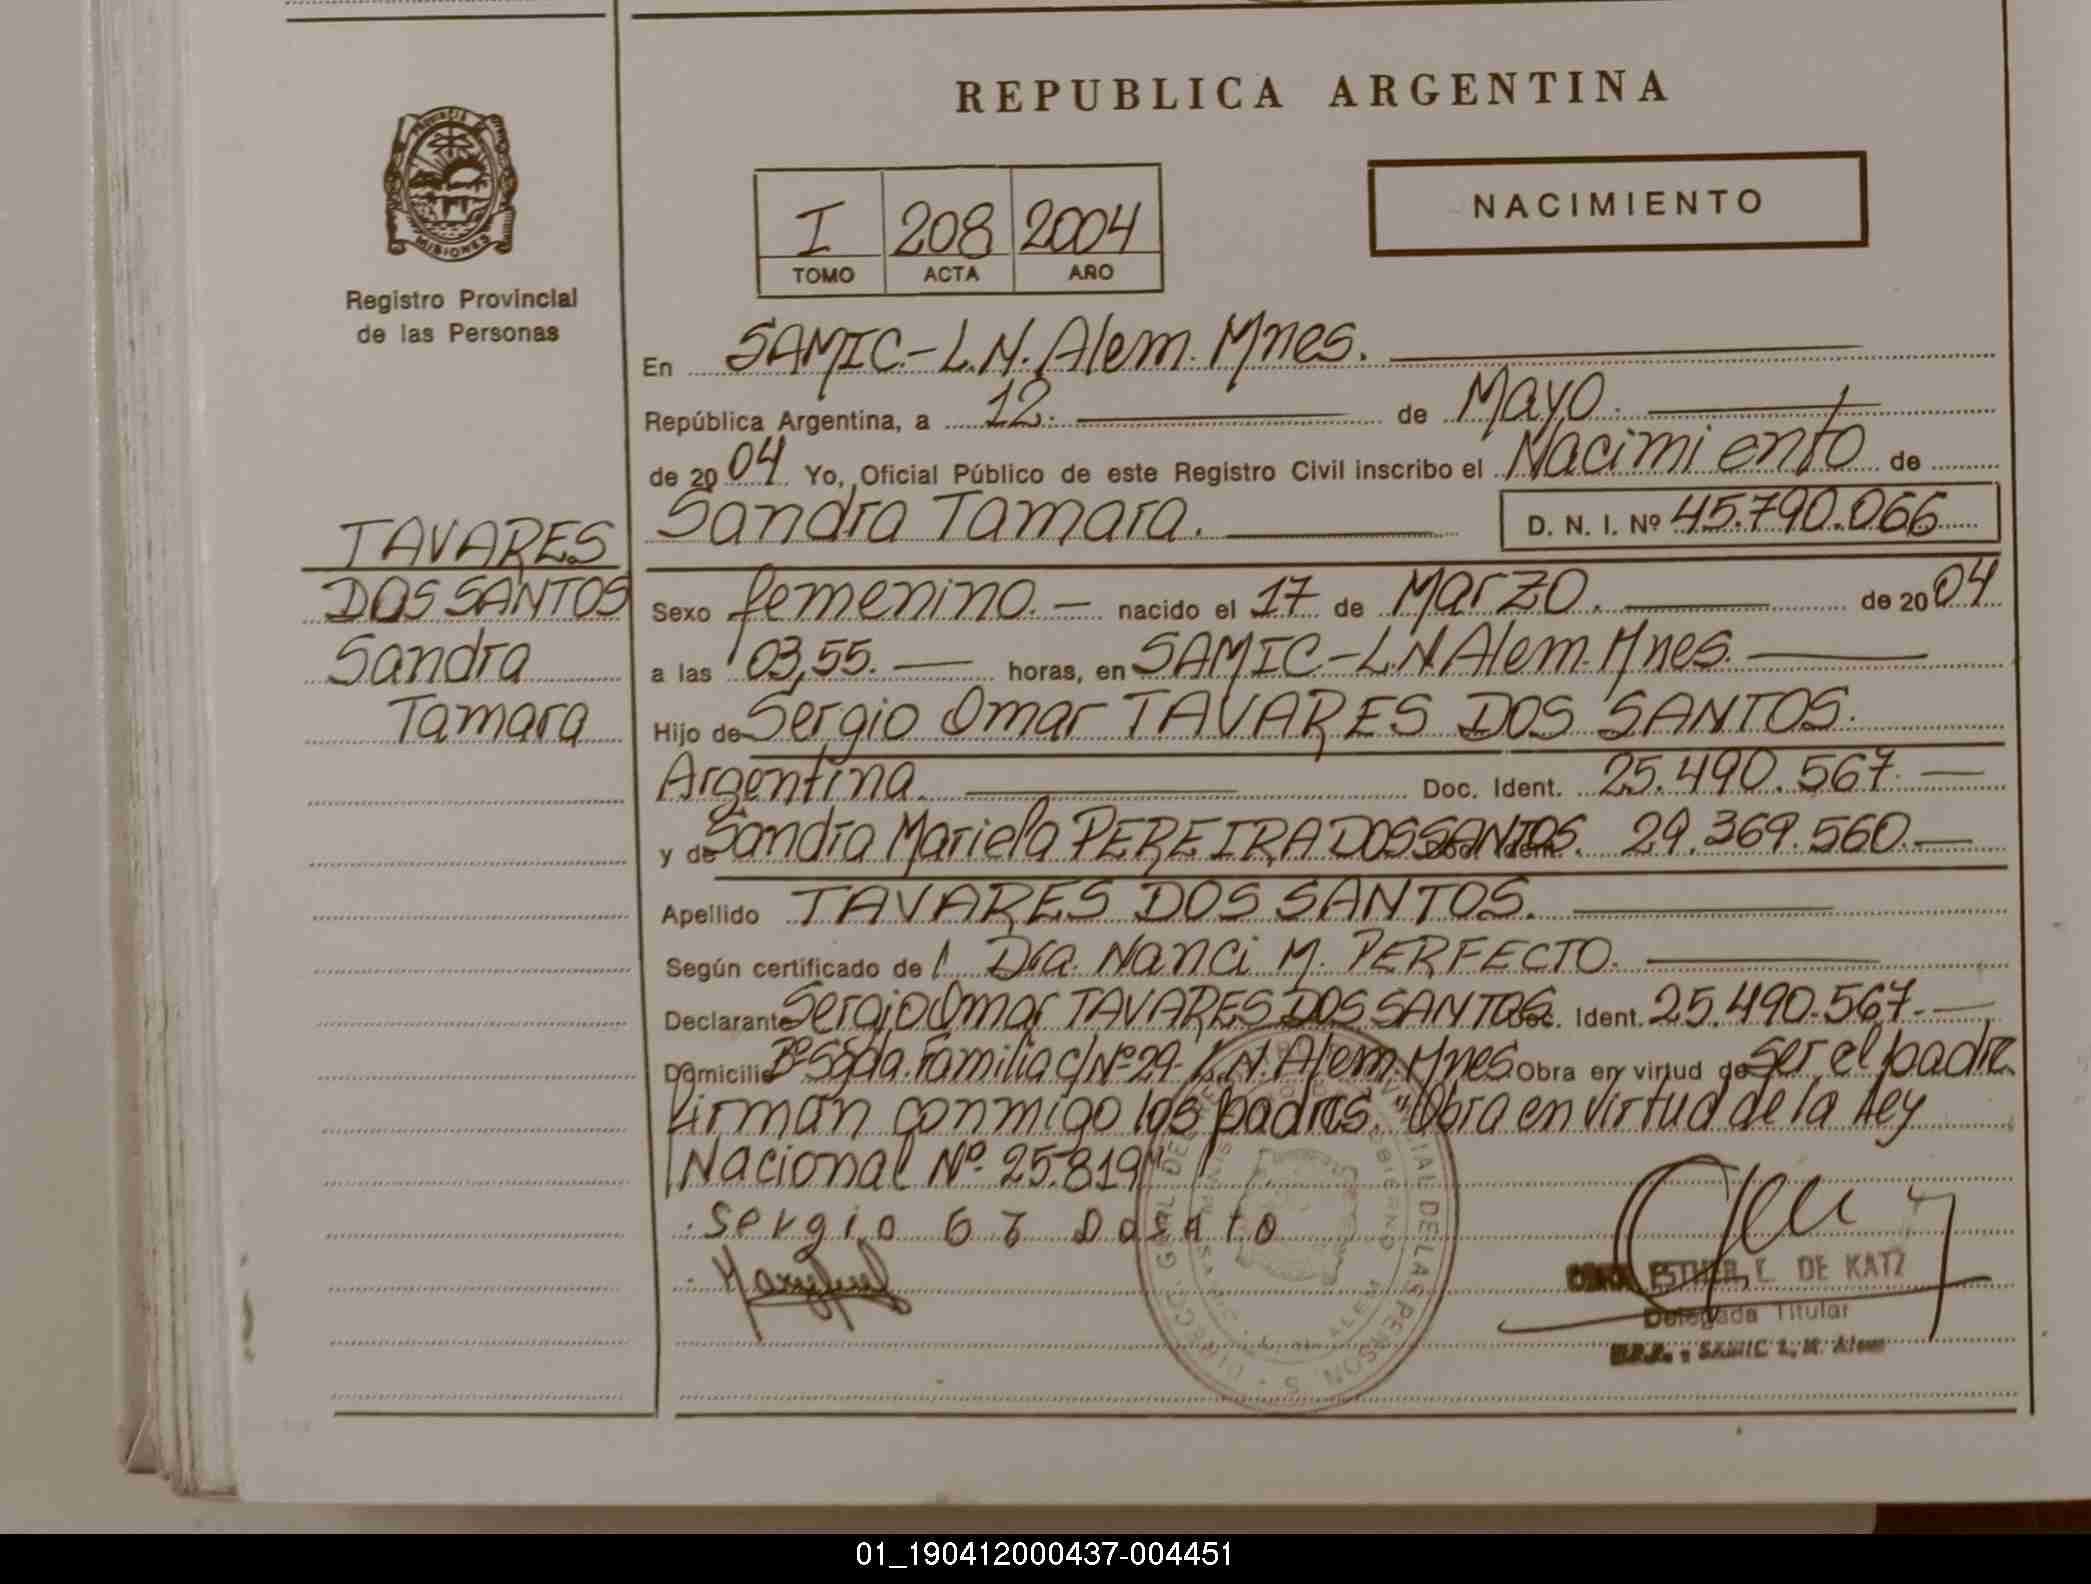 REPUBLICA ARGENTINA
PROVINCIA DE
MISIONES
Registro Provincial
de las Personas
I 208 2004
TOMO ACTA AÑO
NACIMIENTO
En SAMIC.-L.N. Alem. Mnes.
República Argentina, a 12. de Mayo.
de 2004 Yo, Oficial Público de este Registro Civil inscribo el Nacimiento de
Sandra Tamara. D. N. I. Nº 45.790.066
TAVARES
DOS SANTOS
Sandra
Tamara
Sexo femenino. nacido el 17 de Marzo. de 2004
a las 03,55. horas, en SAMIC-L.N Alem. Mnes.
Hijo de Sergio Omar TAVARES DOS SANTOS.
Argentina. Doc. Ident. 25.490.567.
y de Sandra Mariela PEREIRA DOS SANTOS. Doc. Ident. 29.369.560.
Apellido TAVARES DOS SANTOS.
Según certificado de Dra. Nanci M. PERFECTO.
Declarante Sergio Omar TAVARES DOS SANTOS Doc. Ident. 25.490.567.
Domicilio Bº Sgda. Familia c/Nº 29- L.N. Alem. Mnes Obra en virtud de ser el padre
firman conmigo los padres. "Obra en virtud de la Ley
Nacional Nº 25.819"
Sergio
ESTHER DE KATZ
Delegada Titular
SAMIC L. N. Alem
01_190412000437-004451